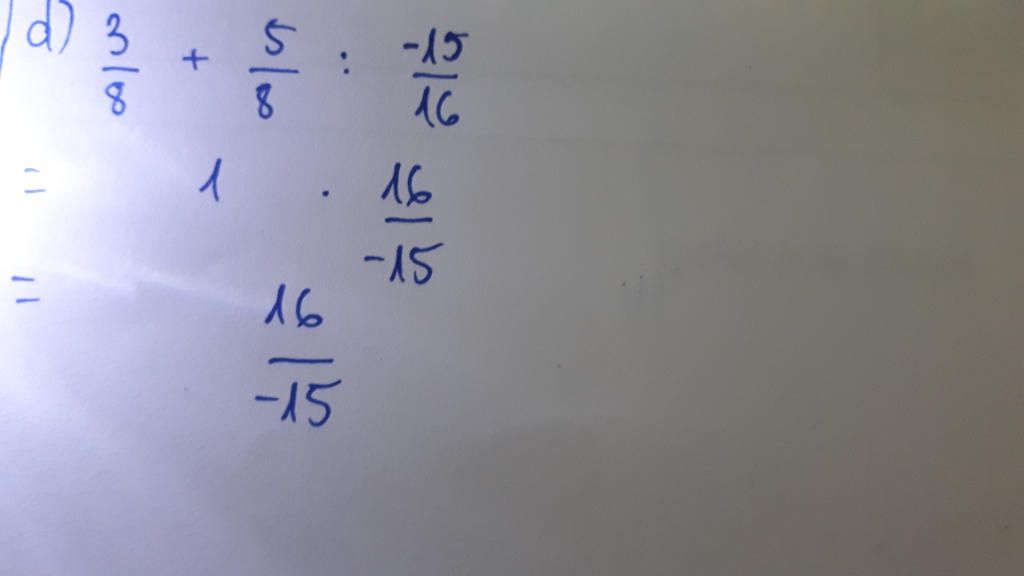 d) 3/8 + 5/8 : -15/16
= 1 . 16/-15
= 16/-15